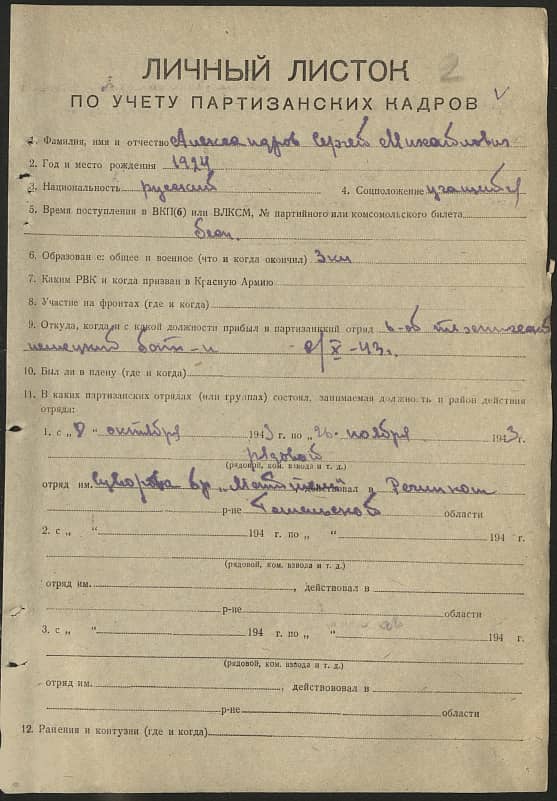 2
ЛИЧНЫЙ ЛИСТОК
ПО УЧЕТУ ПАРТИЗАНСКИХ КАДРОВ
1. Фамилия, имя и отчество Александров Сергей Михайлович
2. Год и место рождения 1924
3. Национальность русский 4. Соцположение учащийся
5. Время поступления в ВКП(б) или ВЛКСМ, № партийного или комсомольского билета
бесп.
6. Образование: общее и военное (что и когда окончил) 3 кл
7. Каким РВК и когда призван в Красную Армию
8. Участие на фронтах (где и когда)
9. Откуда, когда и с какой должности прибыл в партизанский отряд
немецкий бат-н 8/X-43г.
10. Был ли в плену (где и когда)
11. В каких партизанских отрядах (или группах) состоял, занимаемая должность и район действия
отряда:
1. с „8“ октября 1943 г. по „26“ ноября 1943 г.
рядовой
(рядовой, ком. взвода и т. д.)
отряд им. Суворова бр. действовал в Речицком
р-не Гомельской области
2. с „ “ 194 г. по „ “ 194 г.
(рядовой, ком. взвода и т. д.)
отряд им. , действовал в
р-не области
3. с „ “ 194 г. по „ “ 194 г.
(рядовой, ком. взвода и т. д.)
отряд им. , действовал в
р-не области
12. Ранения и контузии (где и когда)